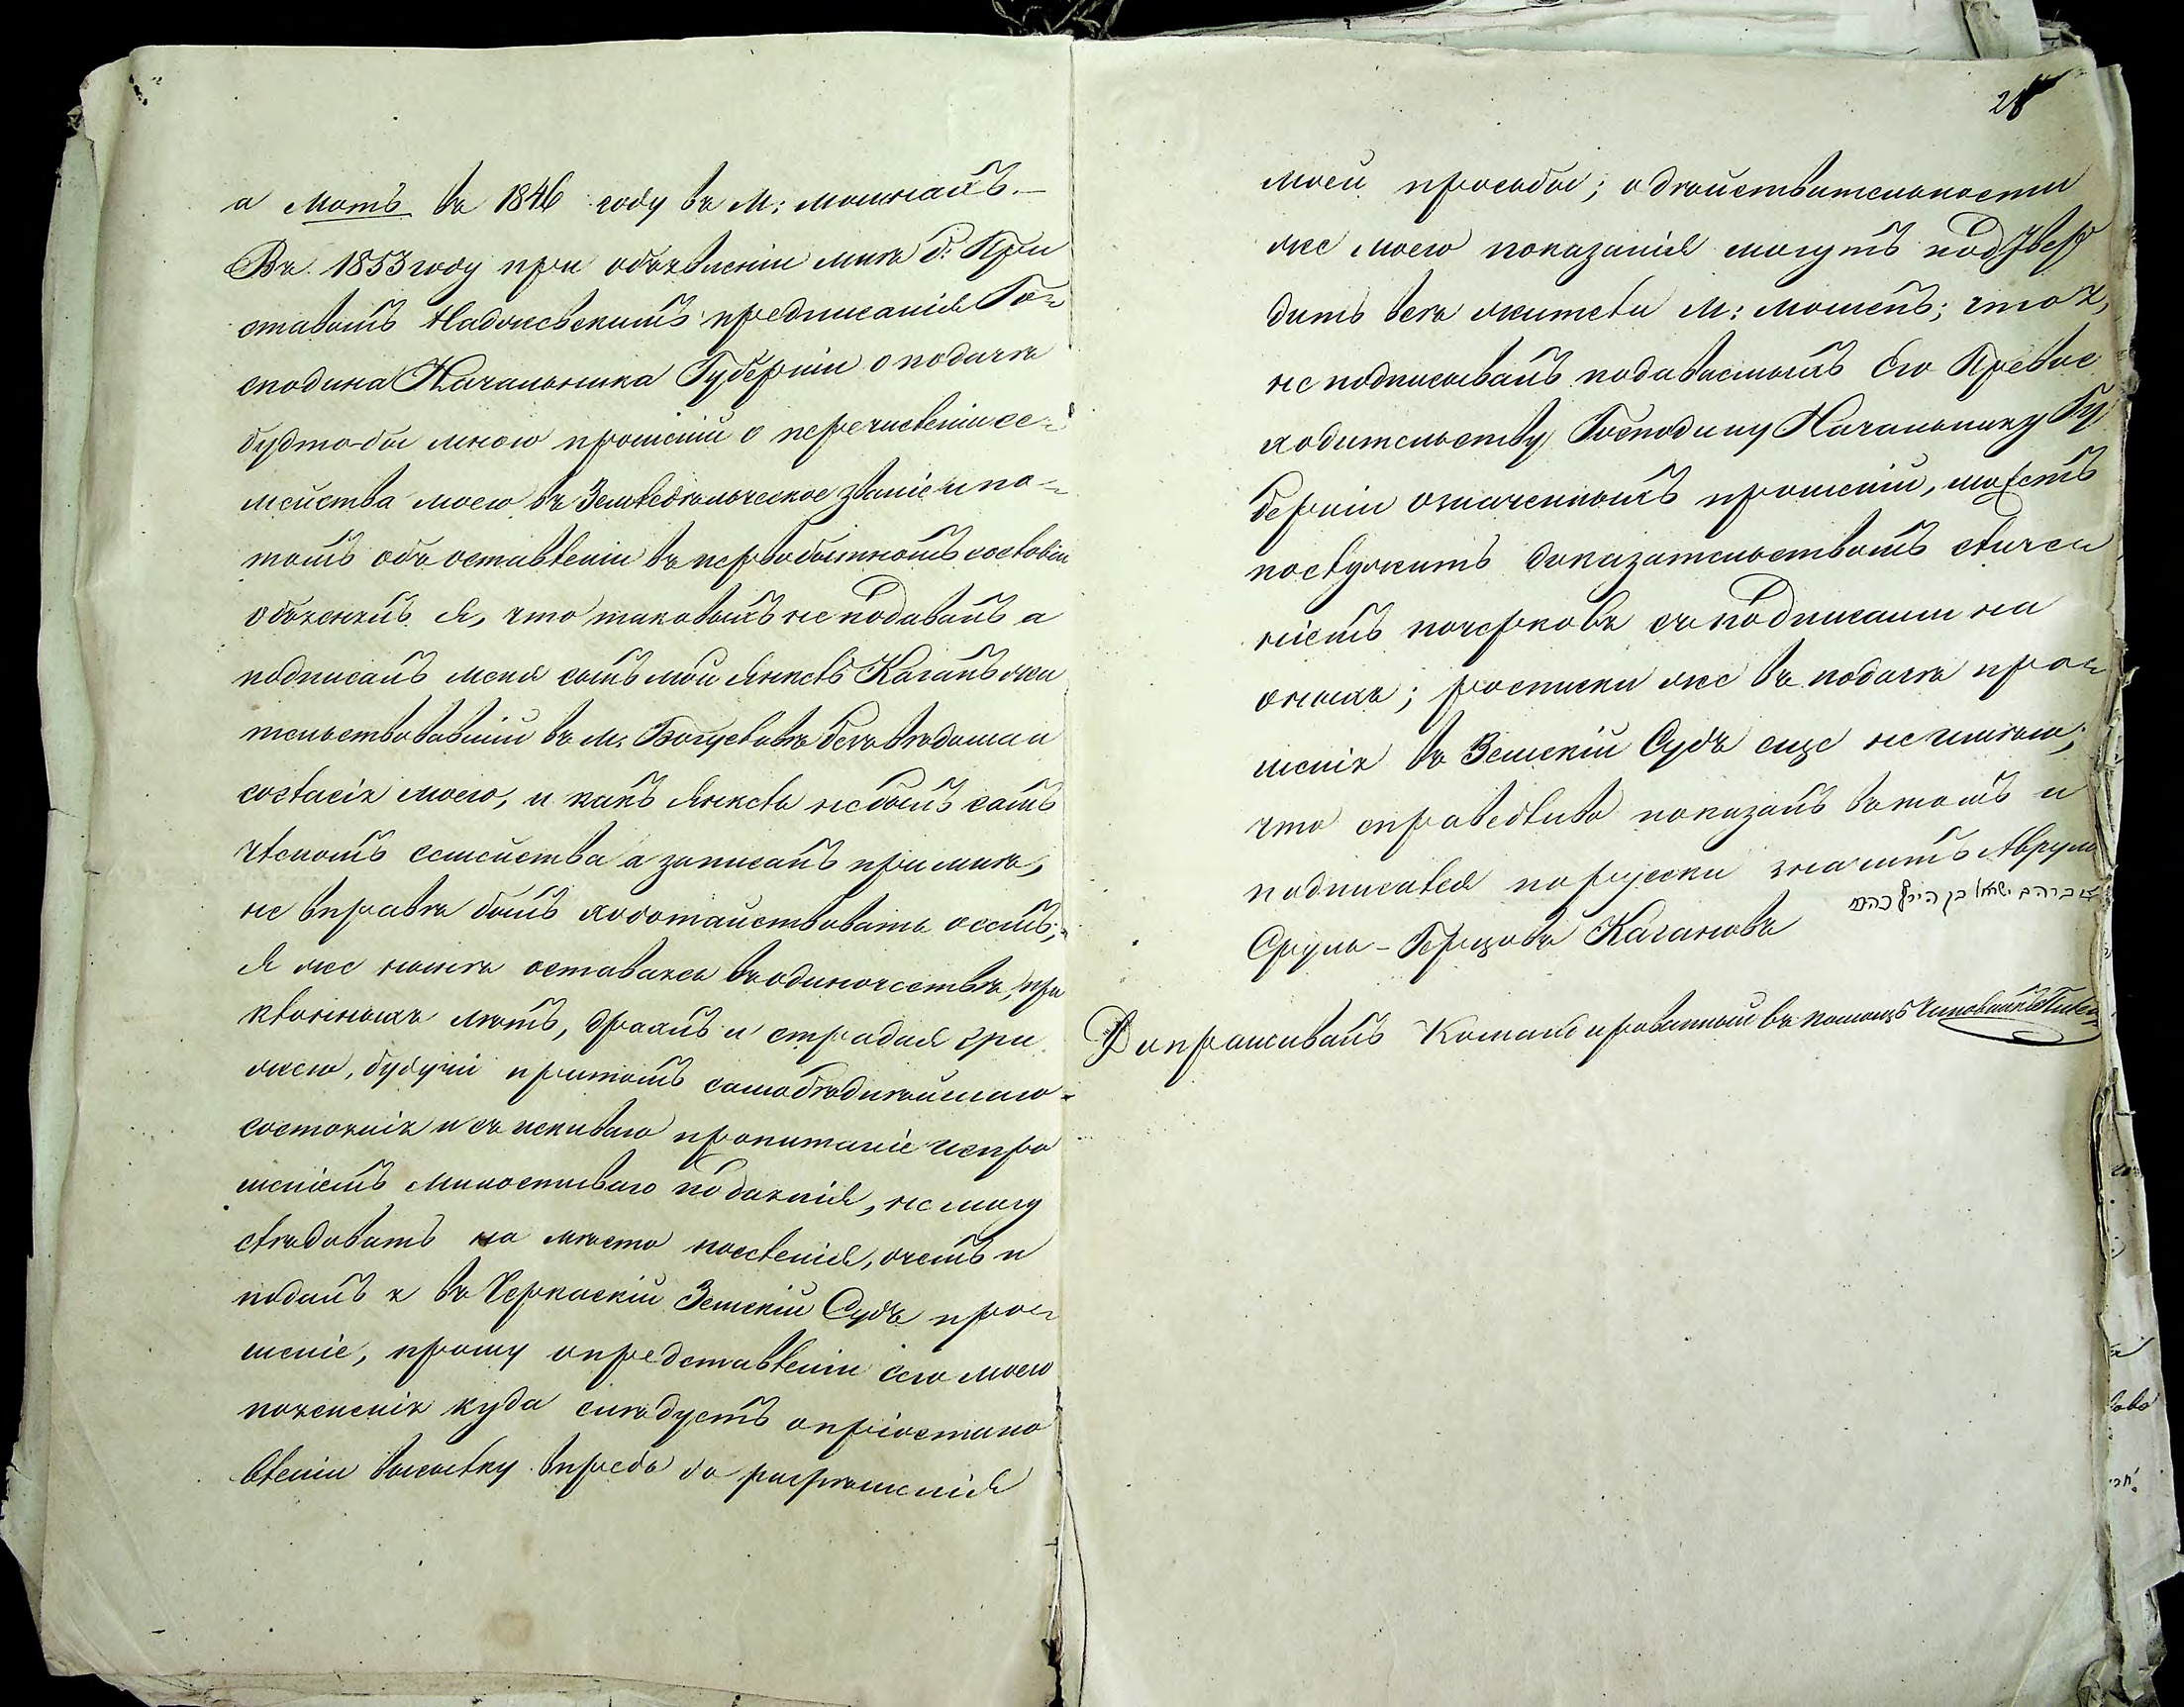 а мать въ 1846 году въ М: Мошнахъ.—
Въ 1853 году при объявленіи мнѣ Г: При
ставомъ предписанія Го=
сподина Начальника Губерніи о подачѣ
будто-бы мною прошеній о перечисленіи се=
мейства моего въ Земледѣльческое званіе и по=
томъ объ оставленіи въ первобытномъ сословіи
объяснялъ я, что таковыхъ не подавалъ а
подписалъ меня сынъ мой Янкель Каганъ жи
тельствовавшій въ М: Богуславѣ безъ вѣдома и
согласія моего, и какъ Янкель не былъ самъ
членомъ семейства а записанъ при мнѣ,
не вправѣ былъ ходотайствовать о семъ;
Я же нынѣ оставаясь въ одиночествѣ, при
клонныхъ лѣтъ, дряхлъ и страдая гри
жею, будучи притомъ самобѣднѣйшаго
состоянія и съискиваю пропитаніе испро
шеніемъ милостиваго подаянія, не могу
слѣдовать на мѣсто поселенія, о чемъ и
подалъ я въ Черкаскій Земскій Судъ про=
шеніе, прошу о представленіи сего моего
поясненія куда слѣдуетъ о пріостано
вленіи высылку впредь до разрѣшенія
28
моей просьбы; о дѣйствительности
же моего показанія могутъ подтвер
дить всѣ жители М: Мошенъ; что я,
не подписывалъ подаваемыхъ Его Превос
ходительству Господину Начальнику Гу
берніи означенныхъ прошеній, можетъ
послужить доказательствомъ сличе
ніемъ почерковъ съ подписами на
оныхъ; росписки же въ подачѣ про=
шенія въ Земскій Судъ еще не имѣю;
что справедливо показалъ въ томъ и
подписался по русски значитъ Аврумъ
אברהם ישראל בן הירץ כהנא
Сруль-Герцовъ Кагановъ
Допрашивалъ Командированный въ помощь Чиновникъ